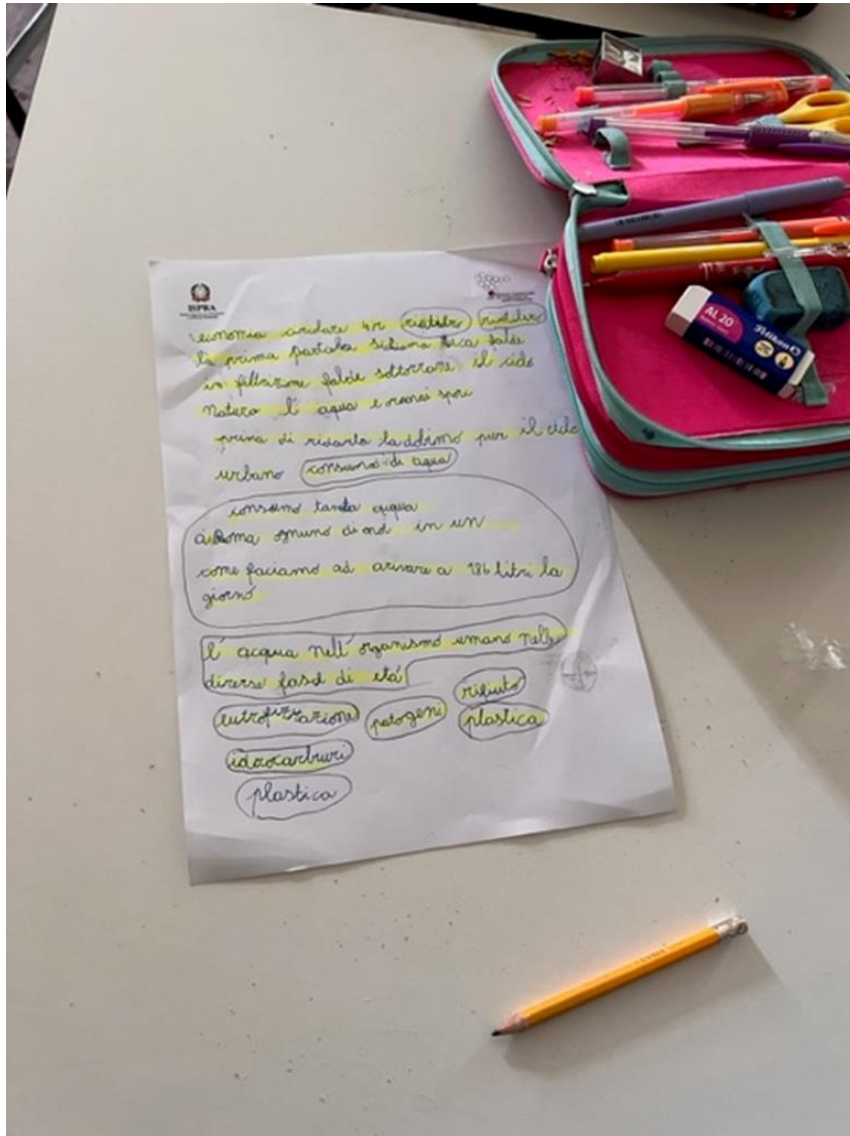 ISPRA
economia circolare 4r
la prima parola schiuma falde
in filtrazione falde sottorrane il ciclo
Naturo l' aqua e
prina di ridarla la dobimo pur il ciclo
urbano consumo di aqua
consumo tanta aqqua
a Roma ognuno di noi in un
come faciamo ad arivare a 186 litri la
giorno
l' acqua nell' organismo umano nelle
diverse fasi di età
eutrofizzazione patogeni rifiuto
plastica
idrocarburi
plastica
AL 20
Pelikan